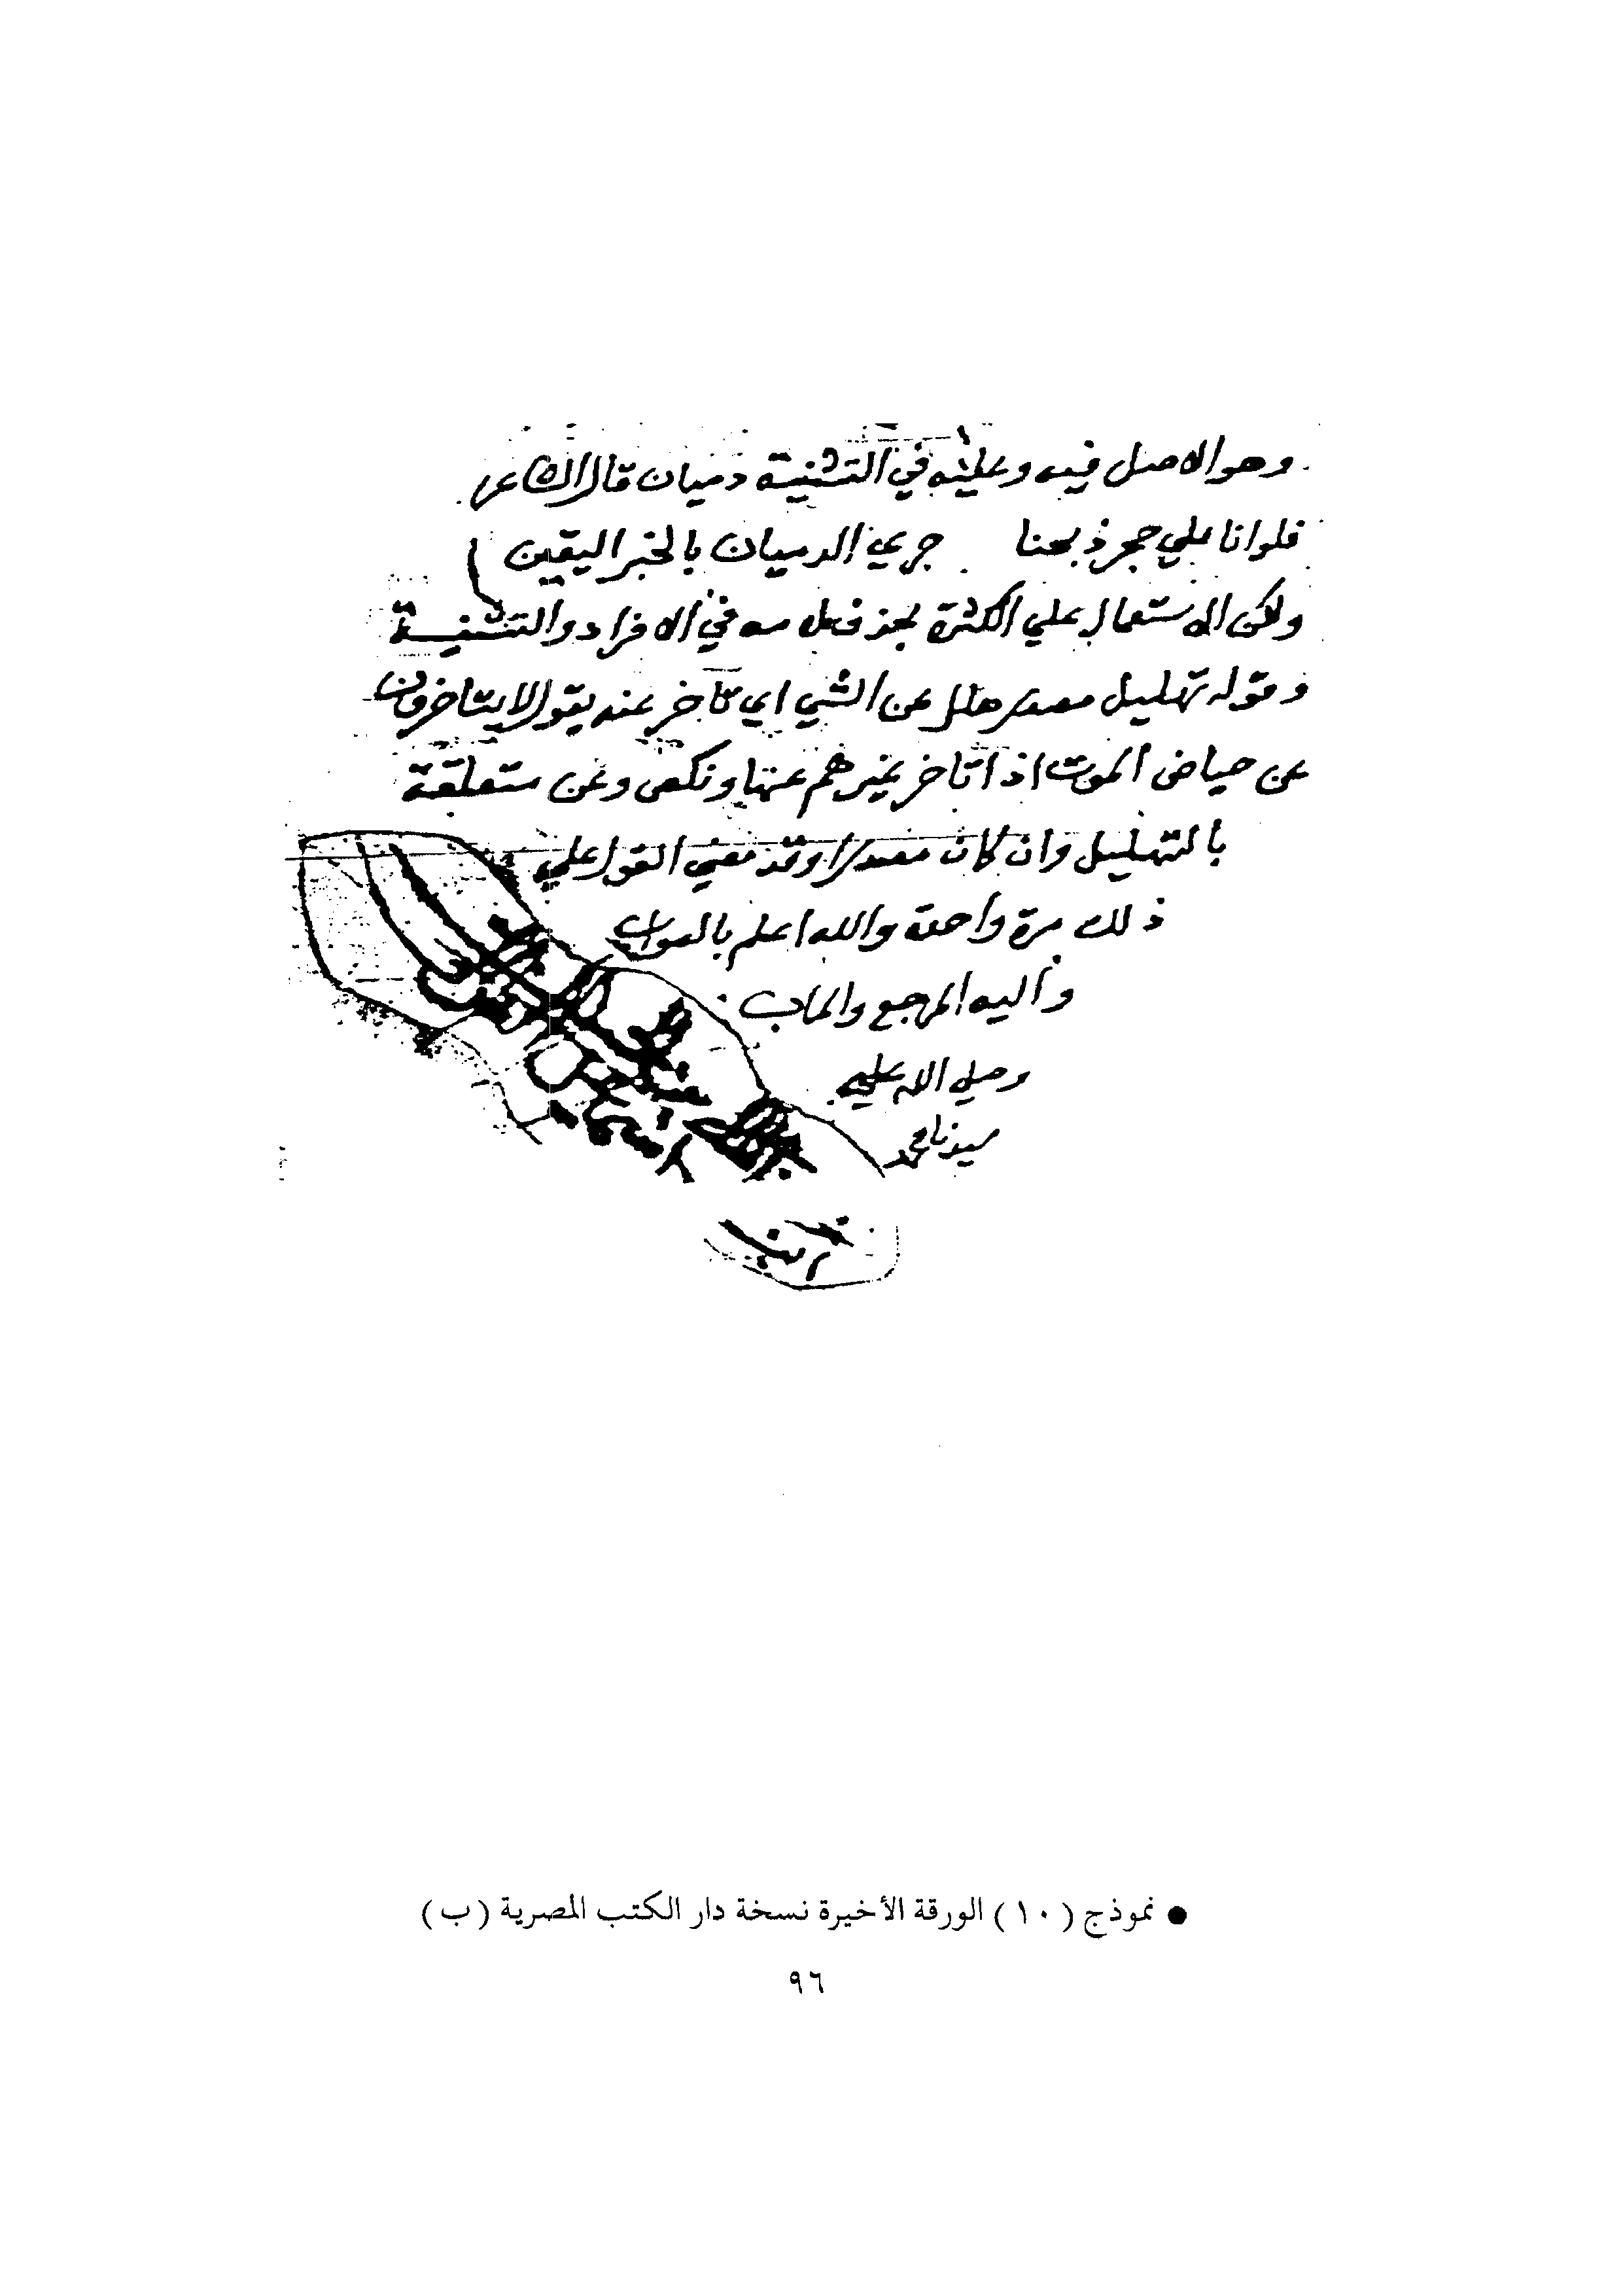 وهو الاصل فيه وعليه في التثنية دميان قال الشاعر
فلوانا علي حجر ذبحنا جري الدميان بالخبر اليقين
ولكن الاستعمال علي الكثرة بحذف لامه في الافراد والتثنية
وقوله تهليل مصدر هلل عن الشي اي تاخر عنه يقول لا يتاخرون
عن حياض الموت اذا تاخر غيرهم عنها ونكص وعن متعلقة
بالتهليل وان كان مصدرا وقد مضي القول علي
ذلك مرة واحدة والله اعلم بالصواب
واليه المرجع والماب
وصلي الله علي
سيدنا محمد
● نموذج (١٠) الورقة الأخيرة نسخة دار الكتب المصرية (ب)
٩٦